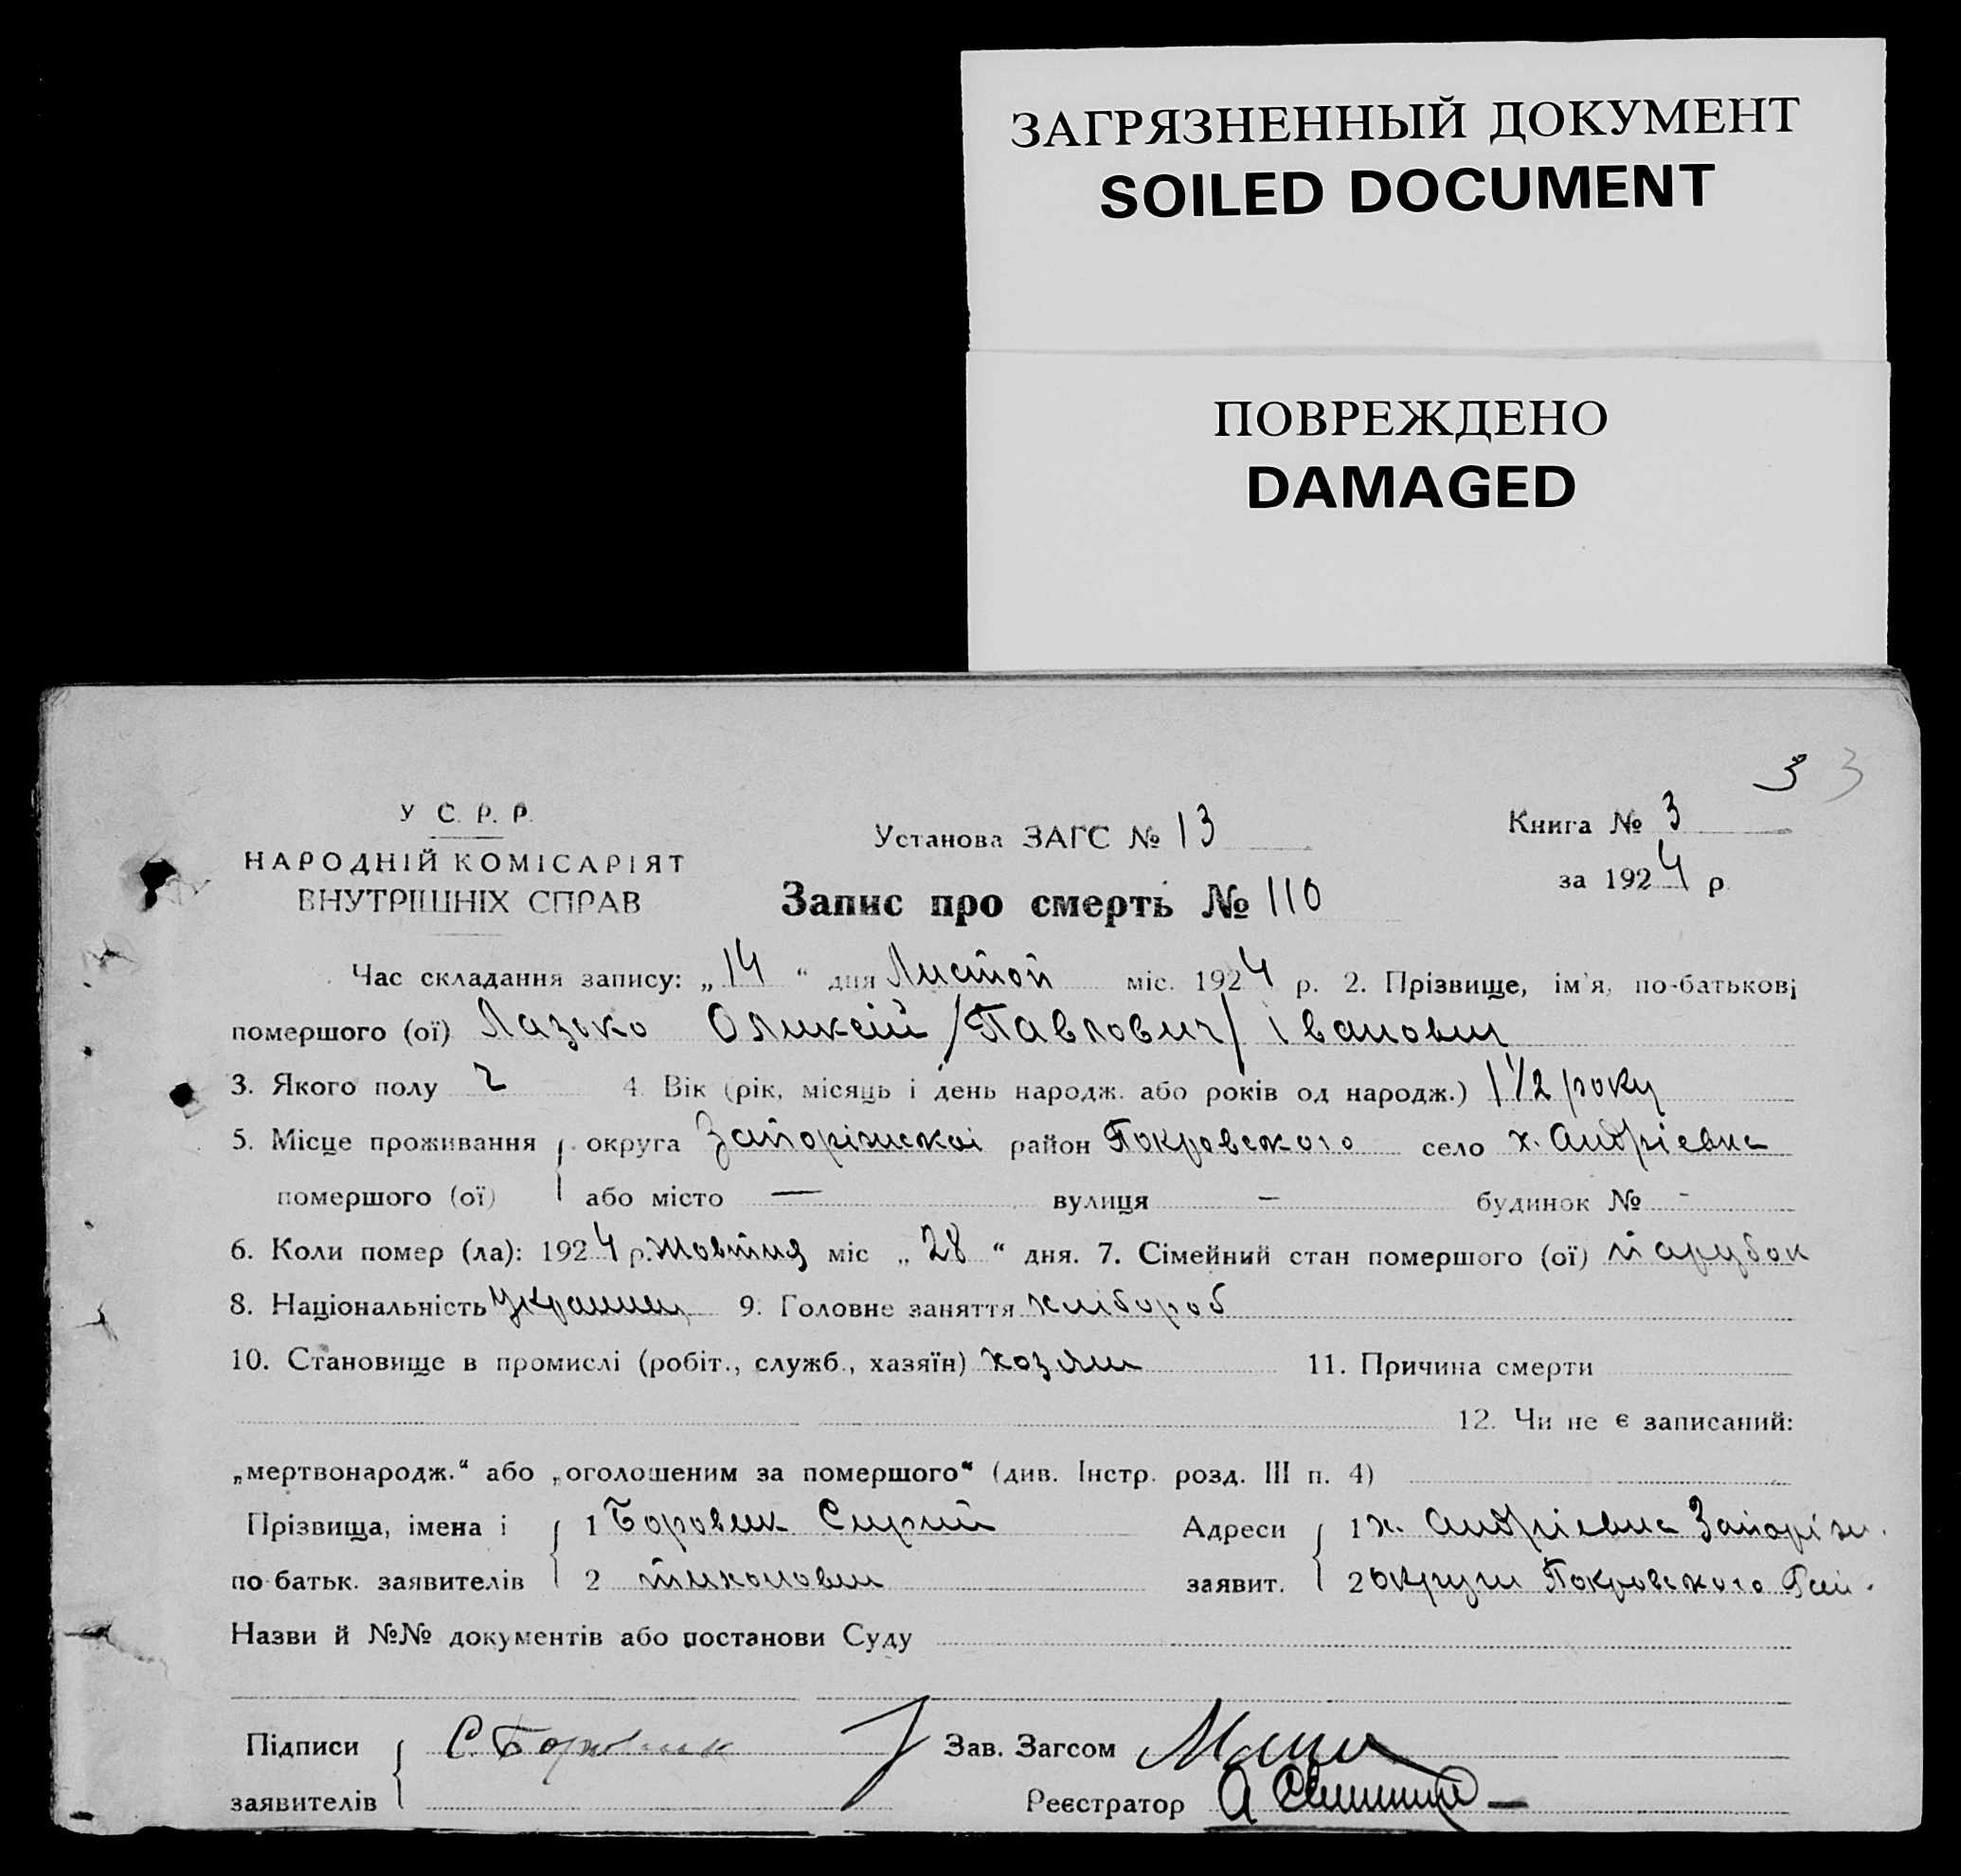 ЗАГРЯЗНЕННЫЙ ДОКУМЕНТ
SOILED DOCUMENT
ПОВРЕЖДЕНО
DAMAGED
3 3
У С. Р. Р.
НАРОДНІЙ КОМІСАРІЯТ
ВНУТРІШНІХ СПРАВ
Установа ЗАГС № 13
Книга № 3
за 1924 р
Запис про смерть № 110
Час складання запису: „14“ дня Листоп міс. 1924 р. 2. Прізвище, ім'я, по-батькові
помершого (ої) Лазько Оликсій /Павлович/ Іванович
3. Якого полу ч 4. Вік (рік, місяць і день народж. або років од народж.) 1 1/2 року
5. Місце проживання округа Запоріжскоі район Покровського село х. Андріевка
помершого (ої) або місто — вулиця – будинок № -
6. Коли помер (ла): 1924 р. Жовтня міс „28“ дня. 7. Сімейний стан помершого (ої) парубок
8. Національність Украинец 9. Головне заняття хлібороб
10. Становище в промислі (робіт., служб., хазяїн) хозяин 11. Причина смерти
12. Чи не є записаний:
„мертвонародж.“ або „оголошеним за помершого“ (див. Інстр. розд. III п. 4)
Прізвища, імена і 1 Боровик Сиргий Адреси 1 х. Андріевка Запоріж.
по-батьк. заявителів 2 тихонович заявит. 2 округи Покровського Рай.
Назви й №№ документів або постанови Суду
Підписи С. Боровик Зав. Загсом
заявителів Реєстратор